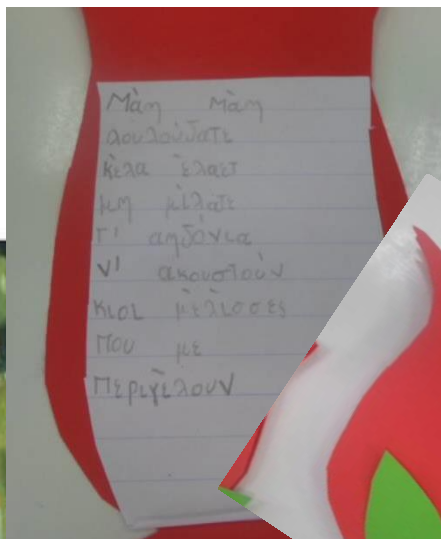 Μάη Μάη
λουλούδατε
κέλα έλαετ
μη μιλάτε
τ' αηδόνια
ν' ακουστούν
κιοι μέλισσες
που με
περιγέλουν